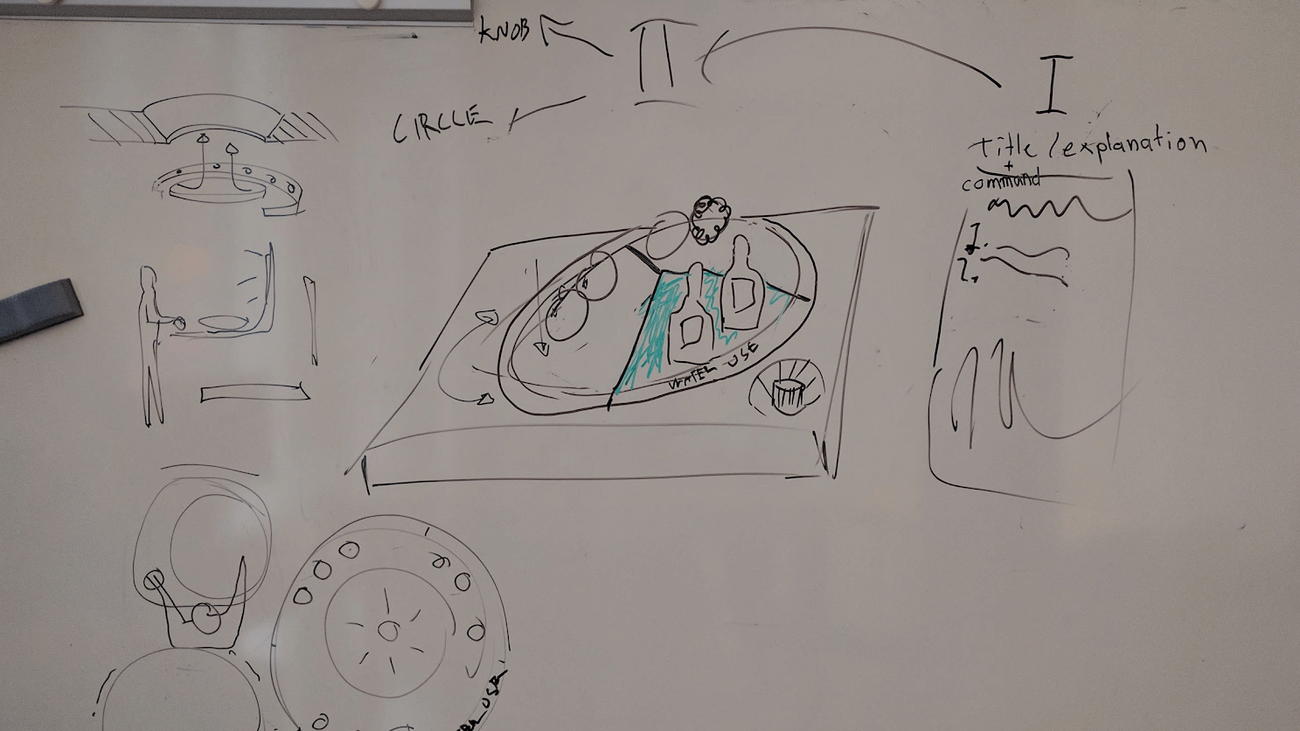 KNOB
II
CIRCLE
I
Title/explanation
+
command
1.
2.
WATER USE